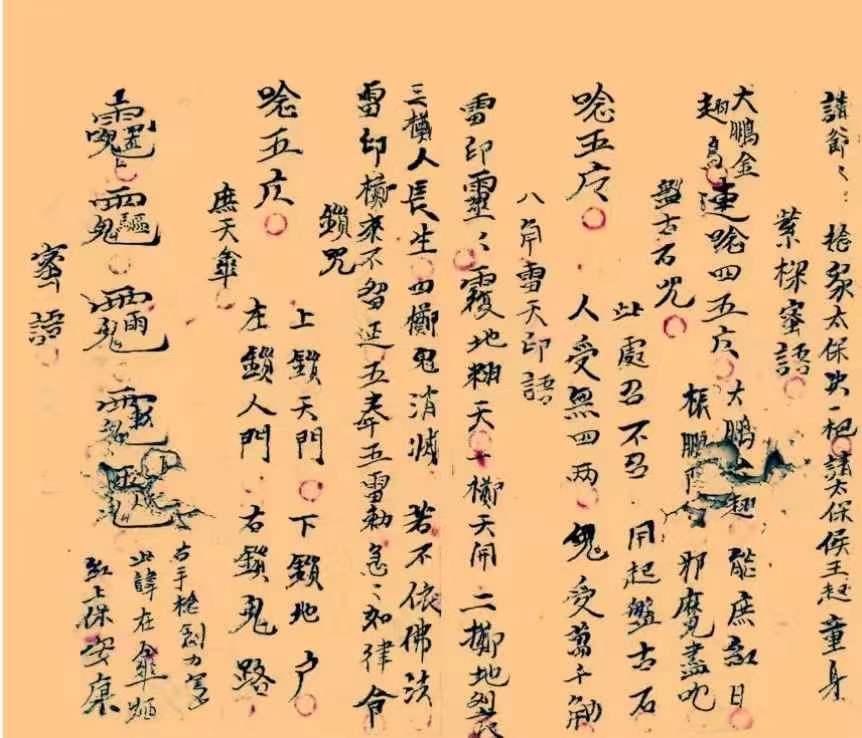 請爺〻：抢家太保出一把請太保侯王赴童身
蜜語
大鵬金翅鳥
連唸四五方
大鵬金翅能庶紅日
振鵬
邪魔盡吃
盤古石咒
此處召不召 用起盤古石
唸五方
人受無四两 鬼受萬千觔
八角雪天印語
雷印靈〻覆地翻天一擲天開二擲地裂
三擲人長生四擲鬼消滅 若不依佛法
雷印擲來不留延五奉五雷勅急〻如律令
鎖咒
唸五方
上鎖天門 下鎖地户
左鎖人門 右鎖鬼路
庶天傘
右手
此諱在傘
紅上保安康
蜜語